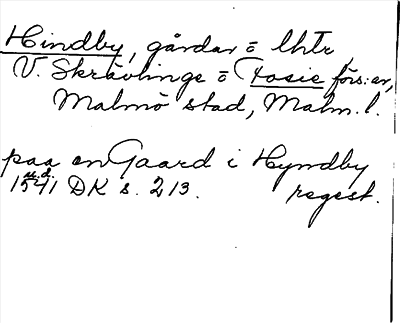 Hindby, gårdar o lhtr
V. Skrävlinge o Fosie förs:ar,
Malmö stad, Malm. l.
paa en Gaard i Hyndby
u.d.
1541 DK s. 213. regest.